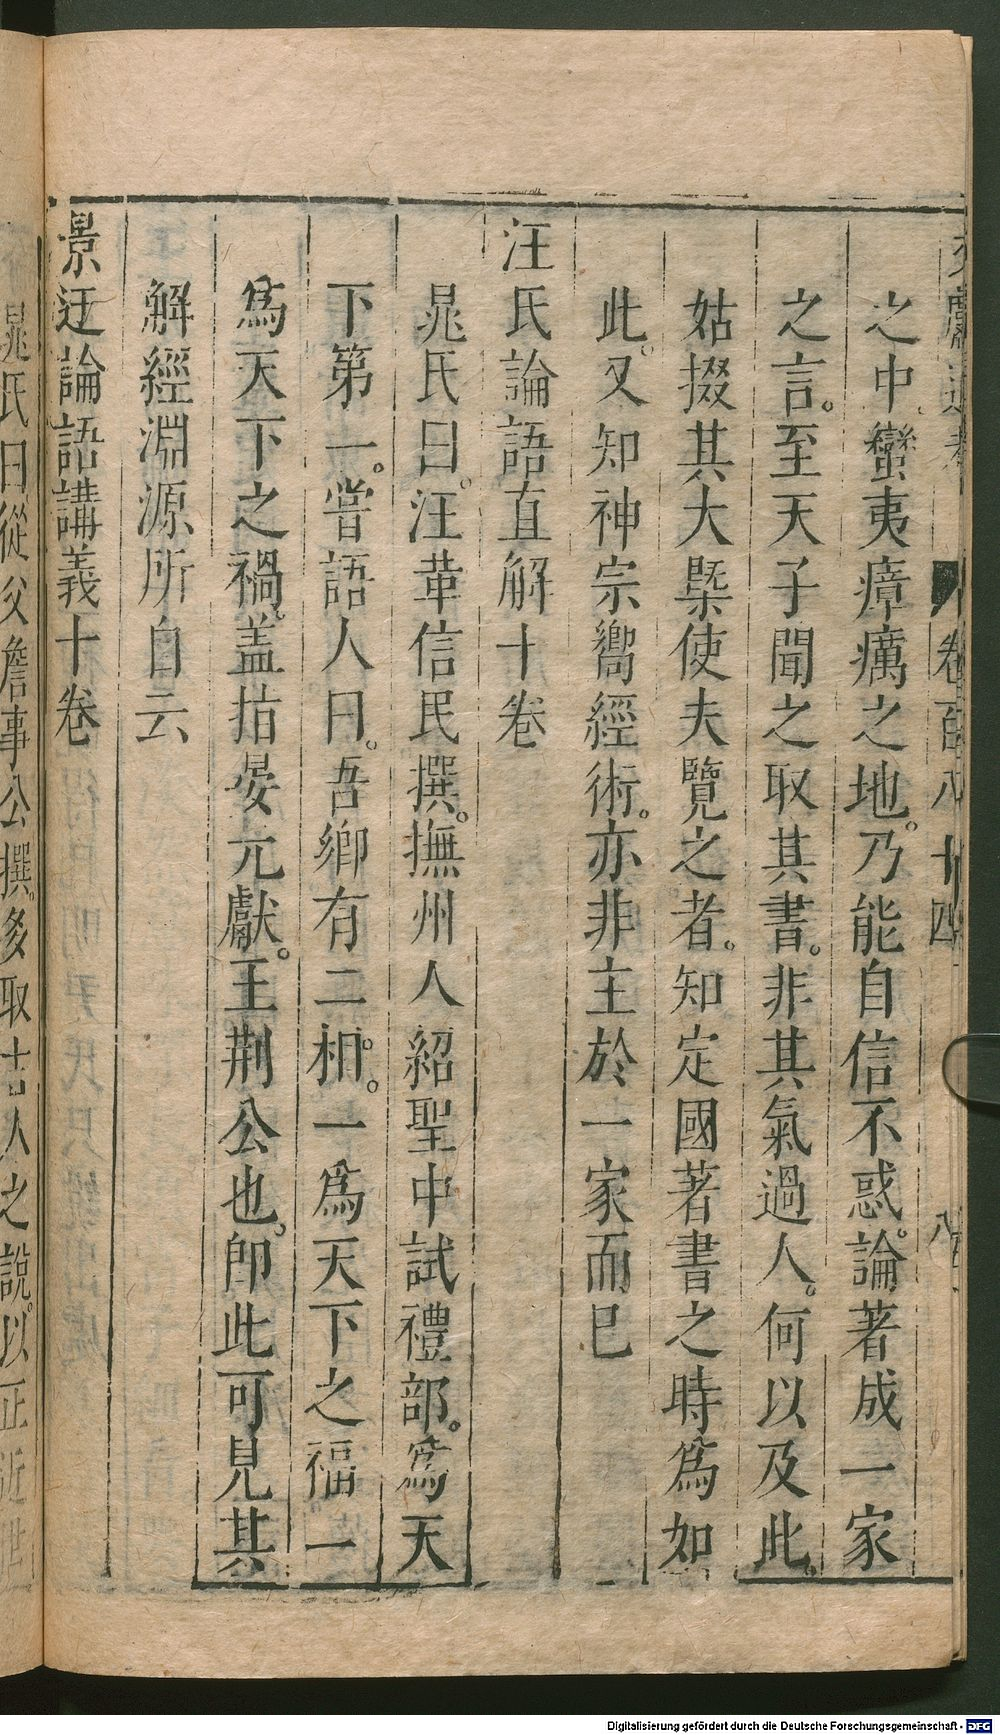 文獻通考 卷百八十四 八
之中蠻夷瘴癘之地。乃能自信不惑。論著成一家
之言。至天子聞之取其書。非其氣過人。何以及此。
姑掇其大槩使夫覽之者。知定國著書之時爲如
此。又知神宗嚮經術。亦非主於一家而已
汪氏論語直解十卷
晁氏曰。汪革信民撰。撫州人紹聖中試禮部。爲天
下第一。嘗語人曰。吾鄉有二相。一爲天下之福。一
爲天下之禍。盖指晏元獻。王荆公也。卽此可見其
解經淵源所自云
景迂論語講義十卷
晁氏曰從父詹事公撰。多取古人之說。以正近世
Digitalisierung gefördert durch die Deutsche Forschungsgemeinschaft - DFG